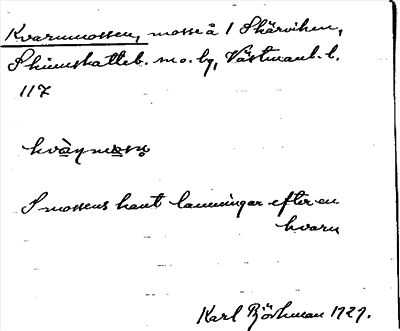 Kvarnmossen, mosse å 1 Skärviken,
Skinnskatteb. sn. o. by, Västmanl. l.
117
kvà̱ṇmo̱sṇ̥
I mossens kant lämningar efter en
kvarn
Karl Björkman 1929.